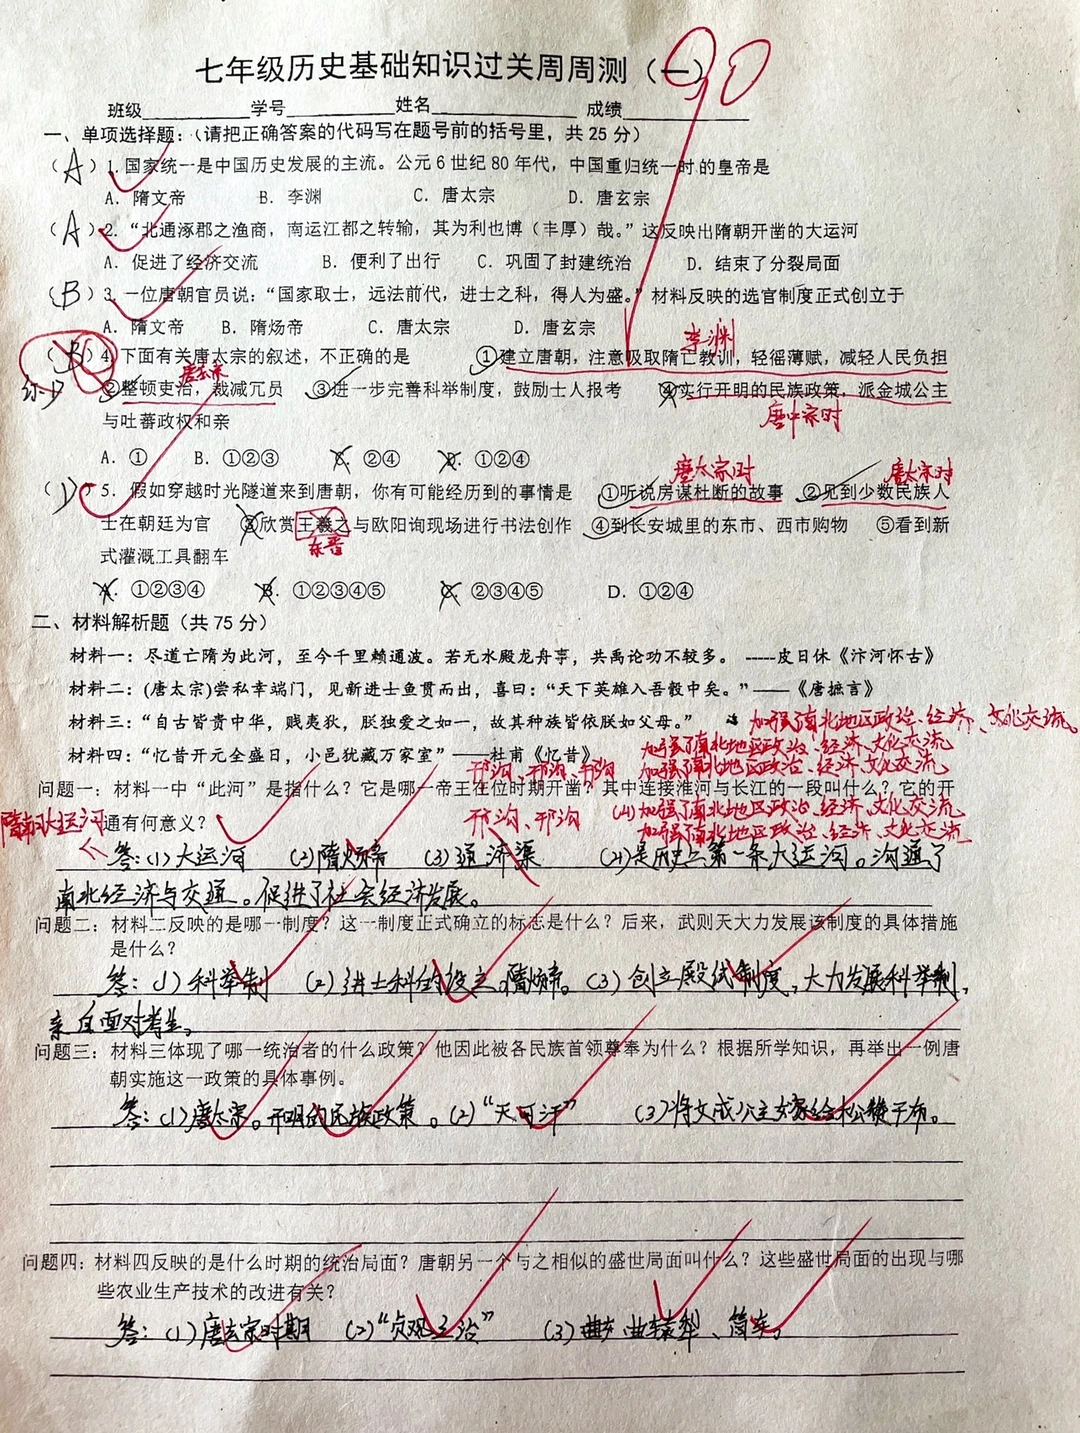 七年级历史基础知识过关周周测（一）
90
班级 学号 姓名 成绩
一、单项选择题：（请把正确答案的代码写在题号前的括号里，共25分）
（A）1.国家统一是中国历史发展的主流。公元6世纪80年代，中国重归统一时的皇帝是
A．隋文帝 B．李渊 C．唐太宗 D．唐玄宗
（A）2.“北通涿郡之渔商，南运江都之转输，其为利也博（丰厚）哉。”这反映出隋朝开凿的大运河
A．促进了经济交流 B．便利了出行 C．巩固了封建统治 D．结束了分裂局面
（B）3.一位唐朝官员说：“国家取士，远法前代，进士之科，得人为盛。”材料反映的选官制度正式创立于
A．隋文帝 B．隋炀帝 C．唐太宗 D．唐玄宗
李渊
（B）4.下面有关唐太宗的叙述，不正确的是 ①建立唐朝，注意吸取隋亡教训，轻徭薄赋，减轻人民负担
唐玄宗
②整顿吏治，裁减冗员 ③进一步完善科举制度，鼓励士人报考 ④实行开明的民族政策，派金城公主
唐中宗时
与吐蕃政权和亲
A．① B．①②③ C．②④ D．①②④
唐太宗时 唐太宗时
（D）5．假如穿越时光隧道来到唐朝，你有可能经历到的事情是 ①听说房谋杜断的故事 ②见到少数民族人
士在朝廷为官 ③欣赏王羲之与欧阳询现场进行书法创作 ④到长安城里的东市、西市购物 ⑤看到新
东晋
式灌溉工具翻车
A．①②③④ B．①②③④⑤ C．②③④⑤ D．①②④
二、材料解析题（共75分）
材料一：尽道亡隋为此河，至今千里赖通波。若无水殿龙舟事，共禹论功不较多。-----皮日休《汴河怀古》
材料二：(唐太宗)尝私幸端门，见新进士鱼贯而出，喜曰：“天下英雄入吾彀中矣。”——《唐摭言》
材料三：“自古皆贵中华，贱夷狄，朕独爱之如一，故其种族皆依朕如父母。”
加强了南北地区政治、经济、文化交流
加强了南北地区政治、经济、文化交流
材料四：“忆昔开元全盛日，小邑犹藏万家室”——杜甫《忆昔》
邗沟、邗沟、邗沟 加强了南北地区政治、经济、文化交流
问题一：材料一中“此河”是指什么？它是哪一帝王在位时期开凿？其中连接淮河与长江的一段叫什么？它的开
隋朝大运河 邗沟、邗沟 (4)加强了南北地区政治、经济、文化交流
通有何意义？
加强了南北地区政治、经济、文化交流
答：(1)大运河 (2)隋炀帝 (3)通济渠 (4)是历史上第一条大运河。沟通了
南北经济与交通。促进了社会经济发展。
问题二：材料二反映的是哪一制度？这一制度正式确立的标志是什么？后来，武则天大力发展该制度的具体措施
是什么？
答：(1)科举制 (2)进士科的设立。隋炀帝。(3)创立殿试制度，大力发展科举制，
亲自面对考生。
问题三：材料三体现了哪一统治者的什么政策？他因此被各民族首领尊奉为什么？根据所学知识，再举出一例唐
朝实施这一政策的具体事例。
答：(1)唐太宗。开明的民族政策。(2)“天可汗” (3)将文成公主嫁给松赞干布。
问题四：材料四反映的是什么时期的统治局面？唐朝另一个与之相似的盛世局面叫什么？这些盛世局面的出现与哪
些农业生产技术的改进有关？
答：(1)唐玄宗时期 (2)“贞观之治” (3)曲辕犁、筒车。